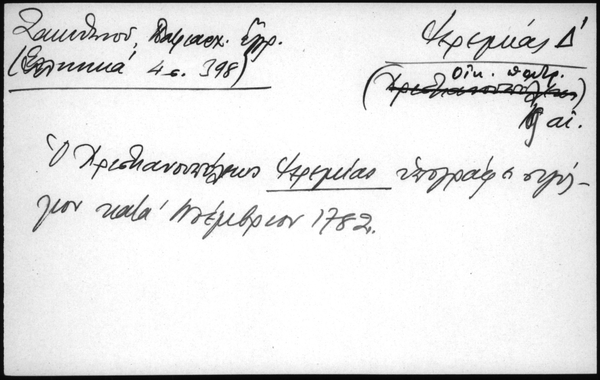 Ζακυθηνού, Πατριαρχ. Έγγρ.
(Ελληνικά 4 σ. 398)
Ἱερεμίας Δ'
Οἰκ. πατρ.
(Χριστιανουπόλεως)
αἰ.
Ὁ Χριστιανουπόλεως Ἱερεμίας ὑπογράφει σιγίλ-
λιον κατά Νοέμβριον 1782.